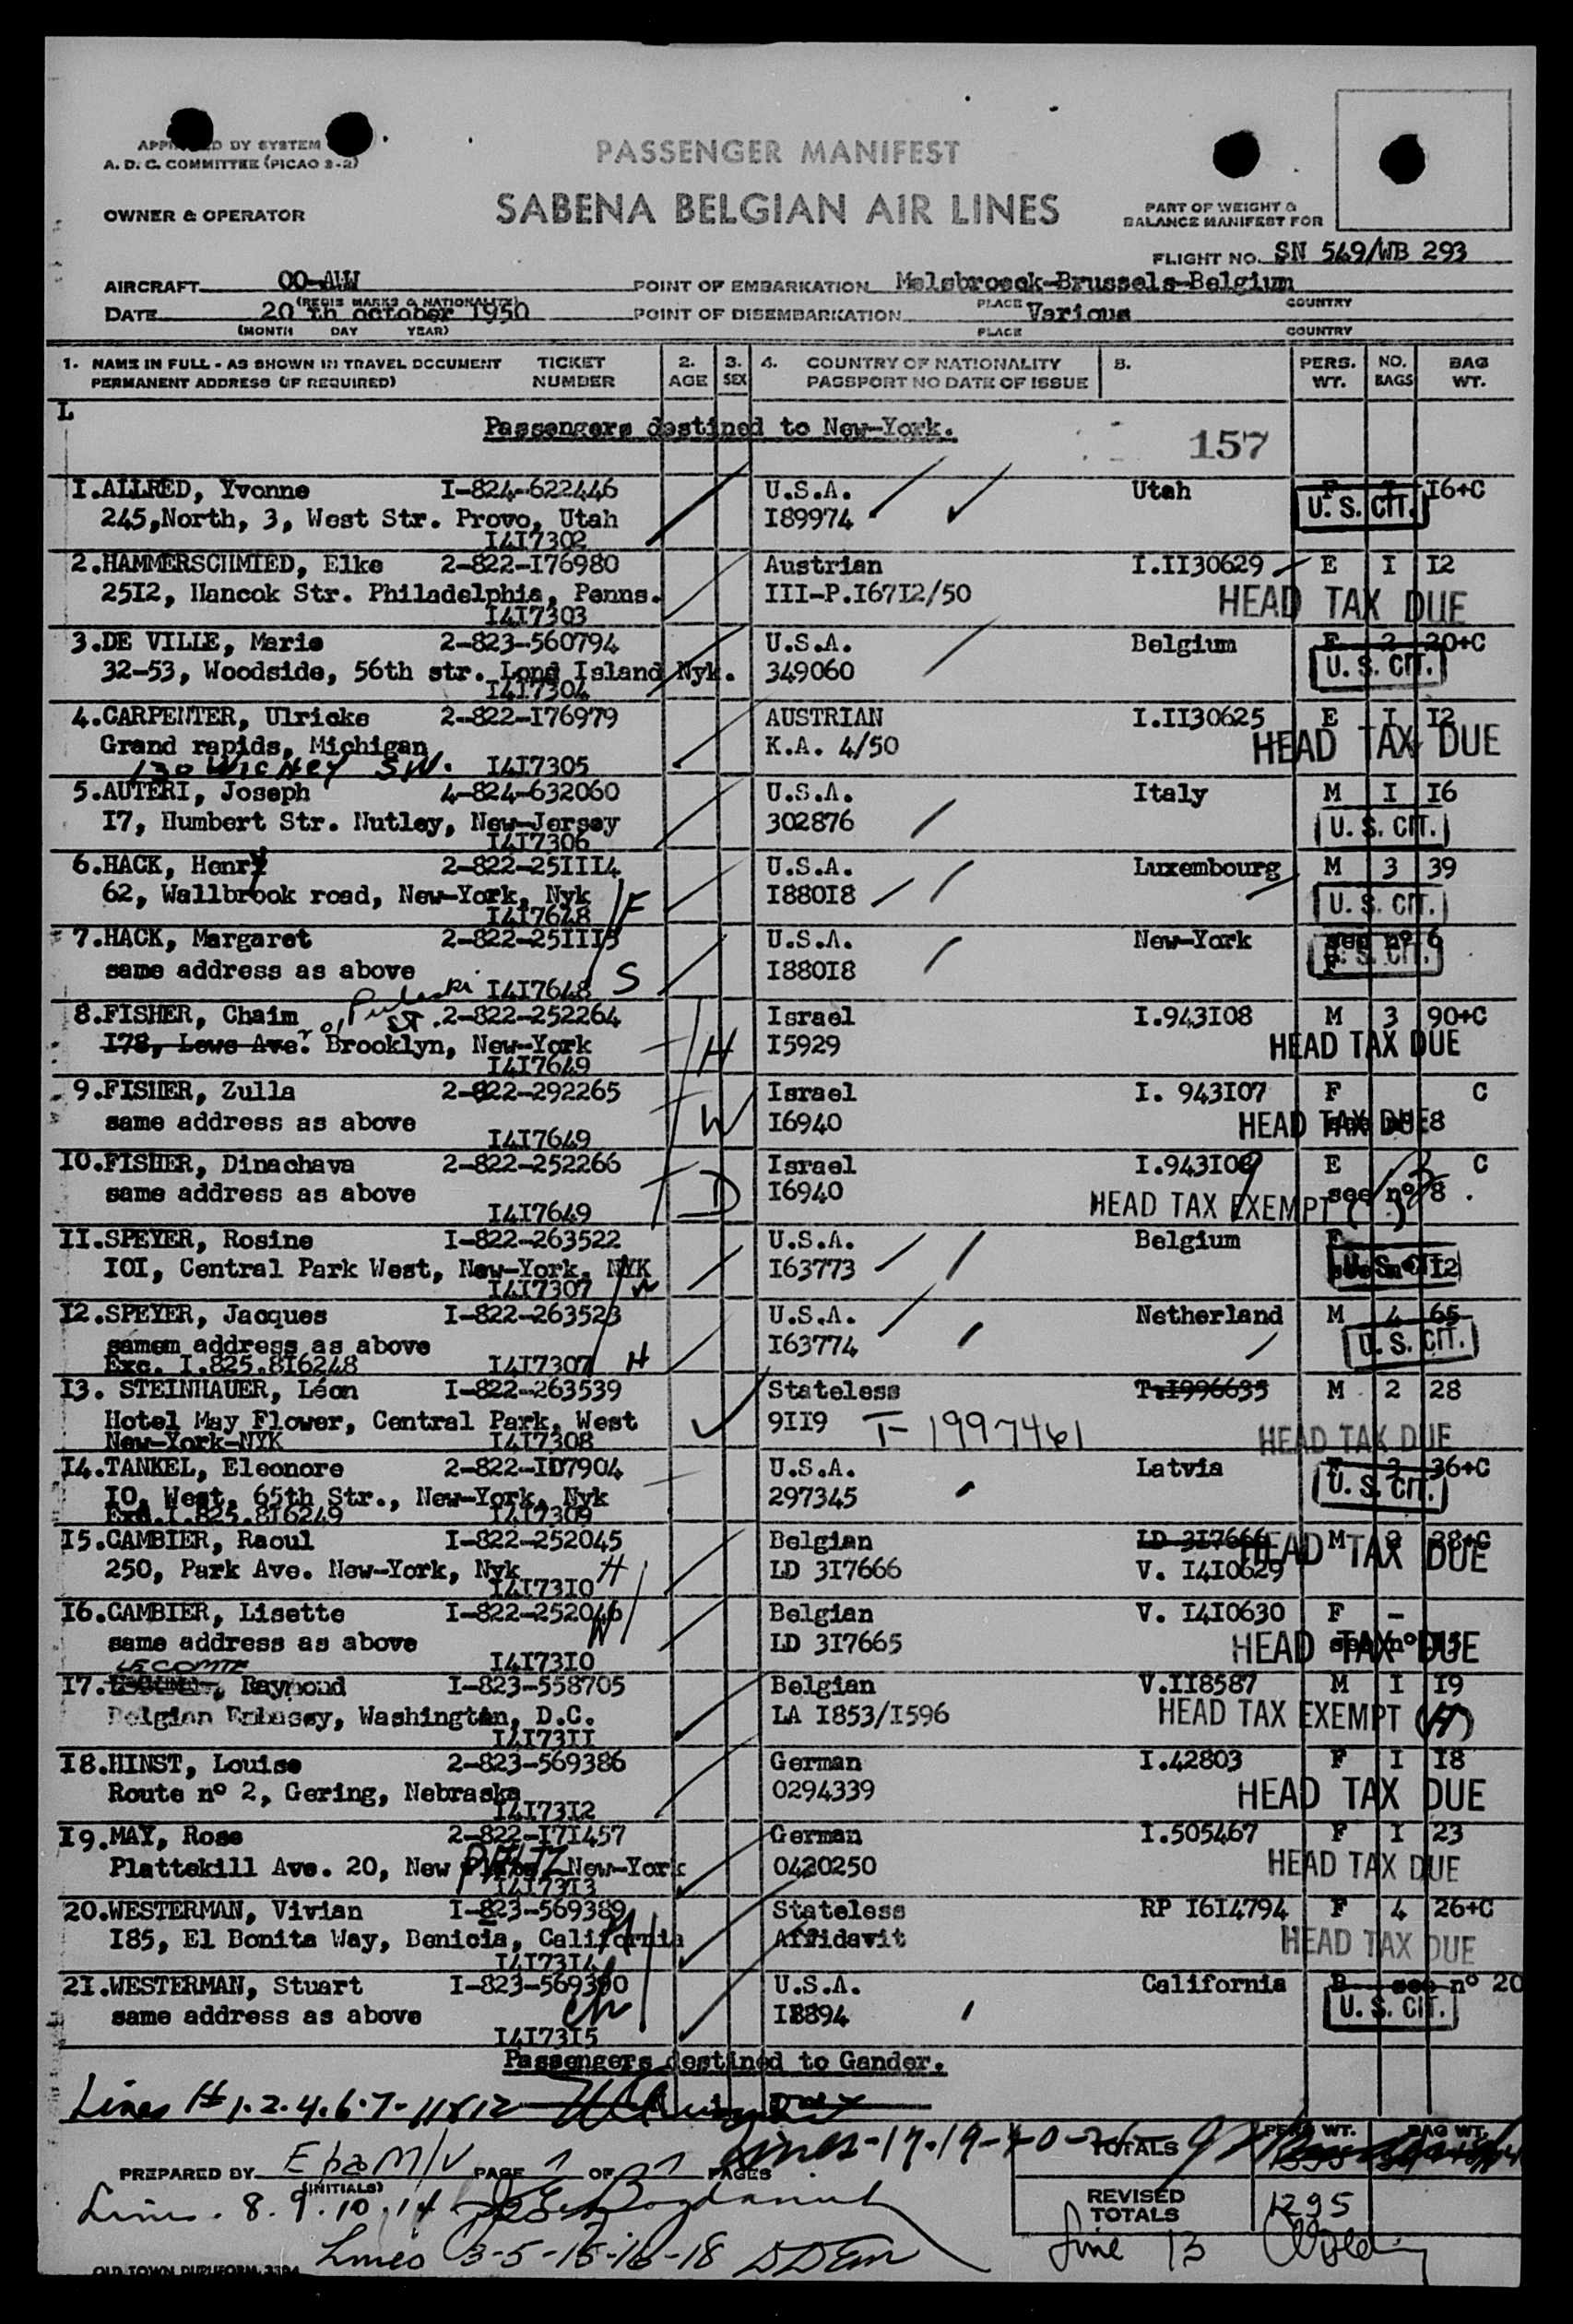 APPROVED BY SYSTEM
A. D. C. COMMITTEE (PICAO 2-2)
PASSENGER MANIFEST
OWNER & OPERATOR
SABENA BELGIAN AIR LINES
PART OF WEIGHT &
BALANCE MANIFEST FOR
FLIGHT NO. SN 549/WB 293
AIRCRAFT OO-AWW
POINT OF EMBARKATION Melsbroeck-Brussels-Belgium
(REGIS MARKS & NATIONALITY)
PLACE COUNTRY
DATE 20 th october 1950
POINT OF DISEMBARKATION Various
(MONTH DAY YEAR)
PLACE COUNTRY
1. NAME IN FULL - AS SHOWN IN TRAVEL DOCUMENT TICKET 2. 3. 4. COUNTRY OF NATIONALITY 5. PERS. NO. BAG
PERMANENT ADDRESS (IF REQUIRED) NUMBER AGE SEX PASSPORT NO DATE OF ISSUE WT. BAGS WT.
L
Passengers destined to New-York.
157
I.ALLRED, Yvonne I-824-622446 U.S.A. Utah I6+C
245,North, 3, West Str. Provo, Utah I89974 U. S. CIT.
I4I7302
2.HAMMERSCHMIED, Elke 2-822-I76980 Austrian I.II30629 E I I2
25I2, Hancok Str. Philadelphia, Penns. III-P.I67I2/50 HEAD TAX DUE
I4I7303
3.DE VILLE, Marie 2-823-560794 U.S.A. Belgium F 2 20+C
32-53, Woodside, 56th str. Long Island Nyk. 349060 U. S. CIT.
I4I7304
4.CARPENTER, Ulricke 2-822-I76979 AUSTRIAN I.II30625 E I I2
Grand rapids, Michigan K.A. 4/50 HEAD TAX DUE
S.W. I4I7305
5.AUTERI, Joseph 4-824-632060 U.S.A. Italy M I I6
I7, Humbert Str. Nutley, New-Jersey 302876 U. S. CIT.
I4I7306
6.HACK, Henry 2-822-25III4 U.S.A. Luxembourg M 3 39
62, Wallbrook road, New-York, Nyk I880I8 U. S. CIT.
I4I7648 F
7.HACK, Margaret 2-822-25III5 U.S.A. New-York see nº 6
same address as above I880I8 U. S. CIT.
I4I7648 S
8.FISHER, Chaim Pulaski ST. 2-822-252264 Israel I.943I08 M 3 90+C
I78, Lews Ave. Brooklyn, New-York H I5929 HEAD TAX DUE
I4I7649
9.FISHER, Zulla 2-822-292265 Israel I. 943I07 F C
same address as above W I6940 HEAD TAX DUE 8
I4I7649
I0.FISHER, Dinachava 2-822-252266 Israel I.943I09 E C
same address as above D I6940 HEAD TAX EXEMPT see nº 8
I4I7649
II.SPEYER, Rosine I-822-263522 U.S.A. Belgium F
I0I, Central Park West, New-York, NYK I63773 U. S. CIT. I2
I4I7307 W
I2.SPEYER, Jacques I-822-263523 U.S.A. Netherland M 4 65
samem address as above I63774 U. S. CIT.
Exc. I.825.8I6248 I4I7307 H
I3. STEINHAUER, Léon I-822-263539 Stateless T.I996635 M 2 28
Hotel May Flower, Central Park, West 9II9 T-1997461 HEAD TAX DUE
New-York-NYK I4I7308
I4.TANKEL, Eleonore 2-822-ID7904 U.S.A. Latvia F 36+C
I0, West, 65th Str., New-York, Nyk 297345 U. S. CIT.
Exc.I.825.8I6249 I4I7309
I5.CAMBIER, Raoul I-822-252045 Belgian LD 3I7666 M 28+C
250, Park Ave. New-York, Nyk H LD 3I7666 V. I4I0629 HEAD TAX DUE
I4I73I0
I6.CAMBIER, Lisette I-822-252046 Belgian V. I4I0630 F -
same address as above W LD 3I7665 HEAD TAX DUE
I4I73I0
LECOMTE
I7. Raymond I-823-558705 Belgian V.II8587 M I I9
Belgian Embassy, Washington, D.C. LA I853/I596 HEAD TAX EXEMPT (H)
I4I73II
I8.HINST, Louise 2-823-569386 German I.42803 F I I8
Route nº 2, Gering, Nebraska 0294339 HEAD TAX DUE
I4I73I2
I9.MAY, Rose 2-822-I7I457 German I.505467 F I 23
Plattekill Ave. 20, New PALTZ New-York 0420250 HEAD TAX DUE
I4I73I3
20.WESTERMAN, Vivian I-823-569389 Stateless RP I6I4794 F 4 26+C
I85, El Bonita Way, Benicia, California Affidavit HEAD TAX DUE
I4I73I4
2I.WESTERMAN, Stuart I-823-569390 U.S.A. California see nº 20
same address as above Ch I8894 U. S. CIT.
I4I73I5
Passengers destined to Gander.
Lines # 1.2.4.6.7-11&12
Lines-17.19-
PREPARED BY PAGE 1 OF 1 PAGES TOTALS PERS. WT. BAG WT.
(INITIALS)
Lines. 8. 9. 10. 14 REVISED TOTALS 1295
Lines 3-5-15-16-18
Line 13
OLD TOWN DUPLIFORM 3394